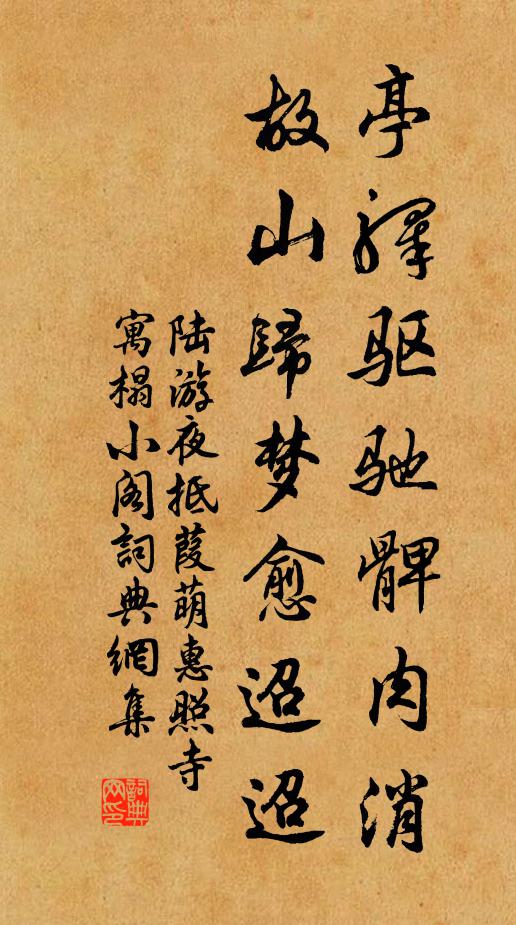 亭驿驱驰髀肉消
故山歸梦愈迢迢
陆游夜抵葭萌惠照寺
寓榻小阁詞典網集
詞典
网印